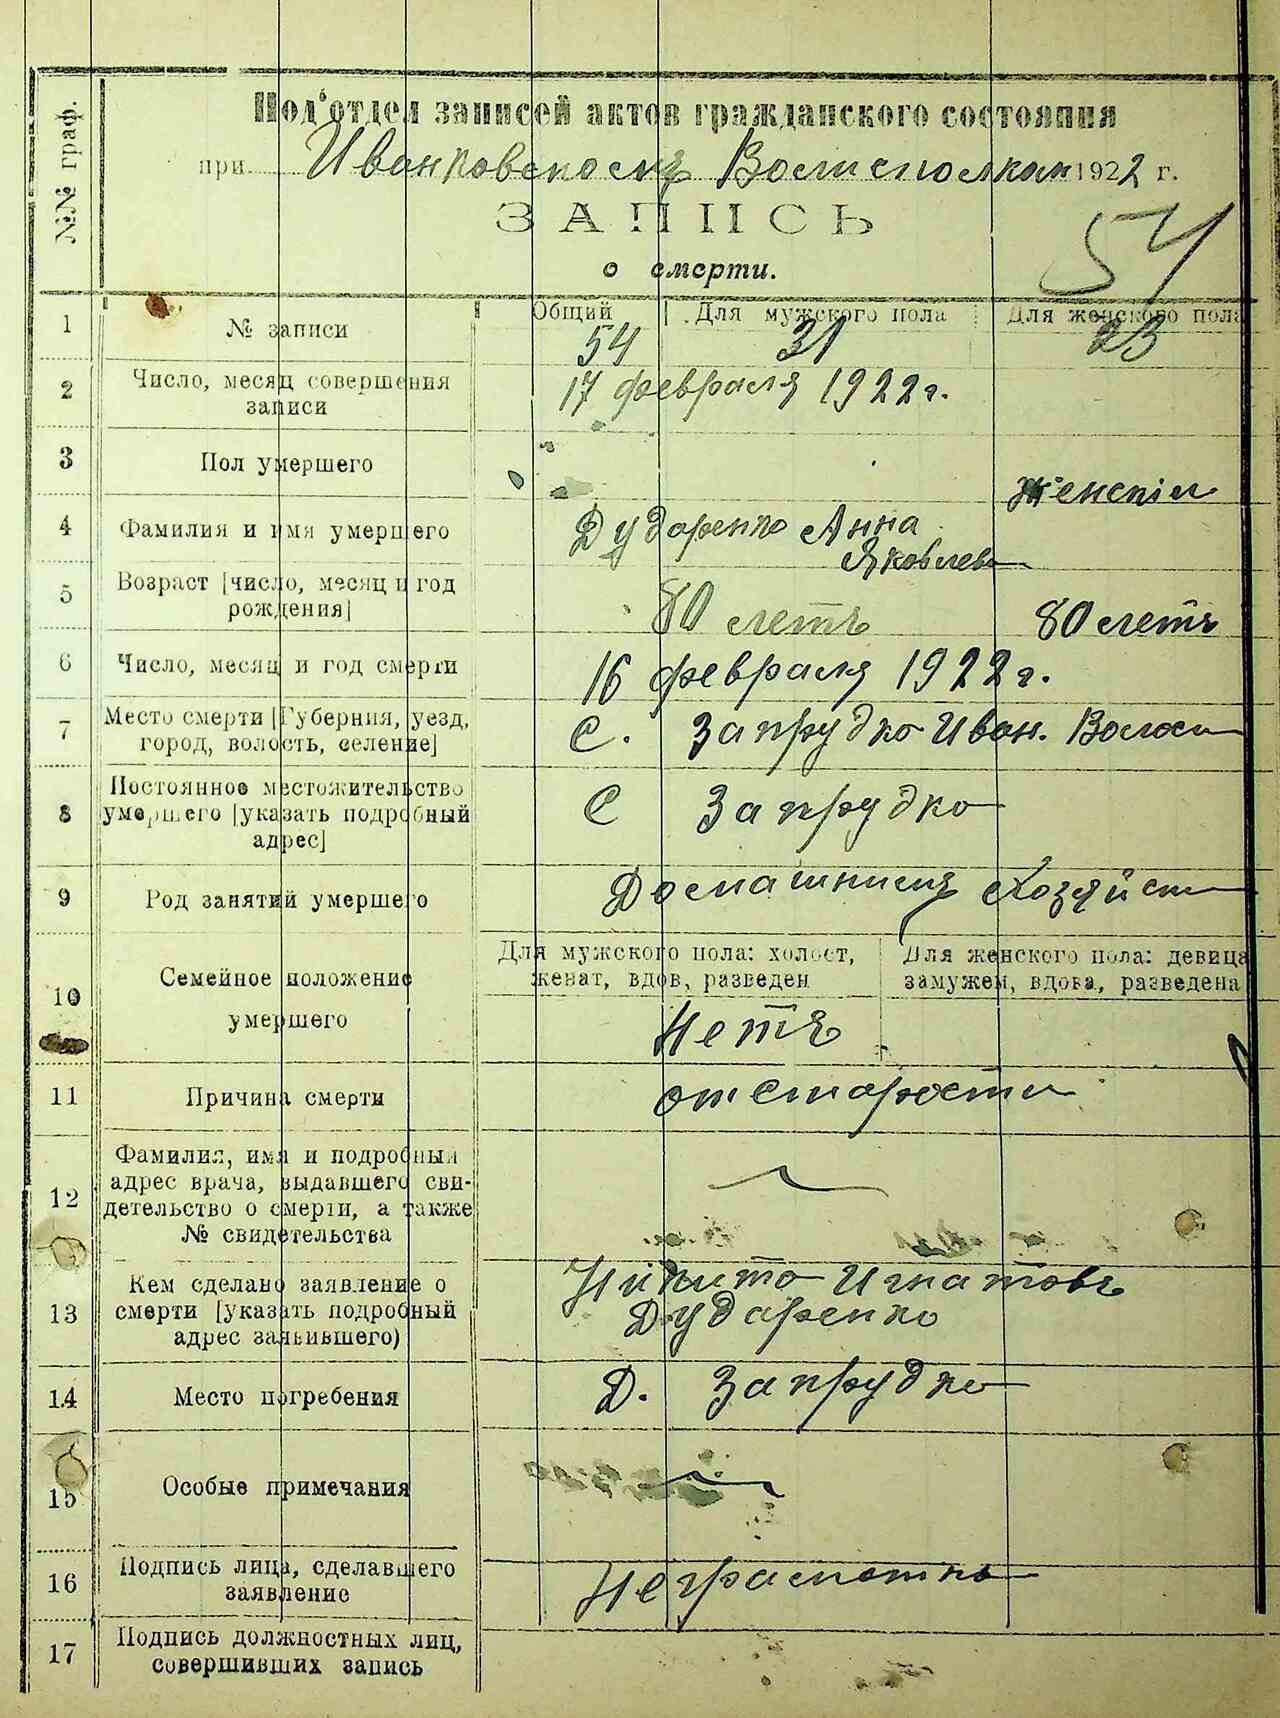 №№ граф.
Под'отдел записей актов гражданского состояния
при Иванковскомъ Волисполком 1922 г.
ЗАПИСЬ
о смерти.
54
1 № записи Общий Для мужского пола Для женского пола
54 31 23
2 Число, месяц совершения
записи
17 февраля 1922 г.
3 Пол умершего
женскій
4 Фамилия и имя умершего
Дударенко Анна
Яковлева
5 Возраст [число, месяц и год
рождения]
80 летъ 80 летъ
6 Число, месяц и год смерти
16 февраля 1922 г.
7 Место смерти [Губерния, уезд,
город, волость, селение]
С. Запрудка Иван. Волости
8 Постоянное местожительство
умершего [указать подробный
адрес]
С Запрудка
9 Род занятий умершего
Домашнимъ Хозяйст
10 Семейное положение
умершего
Для мужского пола: холост,
женат, вдов, разведен
Для женского пола: девица
замужем, вдова, разведена
Нетъ
11 Причина смерти
от старости
12 Фамилия, имя и подробный
адрес врача, выдавшего сви-
детельство о смерти, а также
№ свидетельства
13 Кем сделано заявление о
смерти [указать подробный
адрес заявившего)
Никита Игнатовъ
Дударенко
14 Место погребения
Д. Запрудка
15 Особые примечания
16 Подпись лица, сделавшего
заявление
Неграмотна
17 Подпись должностных лиц,
совершивших запись